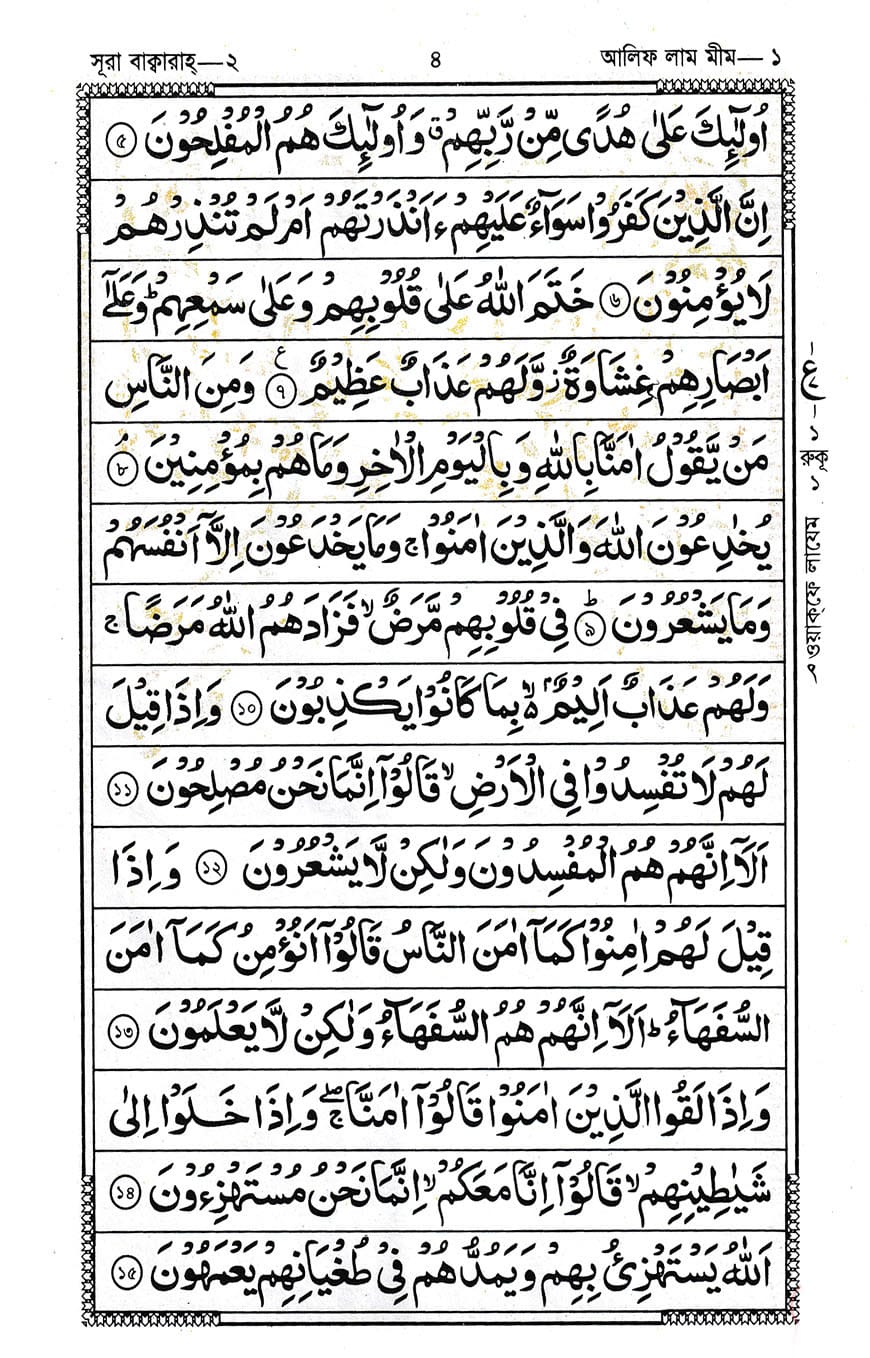 সূরা বাক্বারাহ্—২ ৪ আলিফ লাম মীম— ১
اُولٰٓئِكَ عَلٰى هُدًى مِّنْ رَّبِّهِمْ ق وَاُولٰٓئِكَ هُمُ الْمُفْلِحُوْنَ ৫
اِنَّ الَّذِيْنَ كَفَرُوْا سَوَآءٌ عَلَيْهِمْ ءَاَنْذَرْتَهُمْ اَمْ لَمْ تُنْذِرْهُمْ
لَا يُؤْمِنُوْنَ ৬ خَتَمَ اللّٰهُ عَلٰى قُلُوْبِهِمْ وَعَلٰى سَمْعِهِمْ ط وَعَلٰٓى
اَبْصَارِهِمْ غِشَاوَةٌ ز وَّلَهُمْ عَذَابٌ عَظِيْمٌ ع ৭ وَمِنَ النَّاسِ
مَنْ يَّقُوْلُ اٰمَنَّا بِاللّٰهِ وَبِالْيَوْمِ الْاٰخِرِ وَمَا هُمْ بِمُؤْمِنِيْنَ م ৮
يُخٰدِعُوْنَ اللّٰهَ وَالَّذِيْنَ اٰمَنُوْا ج وَمَا يَخْدَعُوْنَ اِلَّآ اَنْفُسَهُمْ
وَمَا يَشْعُرُوْنَ ط ৯ فِيْ قُلُوْبِهِمْ مَّرَضٌ لا فَزَادَهُمُ اللّٰهُ مَرَضًا ج
وَلَهُمْ عَذَابٌ اَلِيْمٌۢ ۵ لا بِمَا كَانُوْا يَكْذِبُوْنَ ১০ وَاِذَا قِيْلَ
لَهُمْ لَا تُفْسِدُوْا فِي الْاَرْضِ لا قَالُوْٓا اِنَّمَا نَحْنُ مُصْلِحُوْنَ ১১
اَلَآ اِنَّهُمْ هُمُ الْمُفْسِدُوْنَ وَلٰكِنْ لَّا يَشْعُرُوْنَ ১২ وَاِذَا
قِيْلَ لَهُمْ اٰمِنُوْا كَمَآ اٰمَنَ النَّاسُ قَالُوْٓا اَنُؤْمِنُ كَمَآ اٰمَنَ
السُّفَهَآءُ ط اَلَآ اِنَّهُمْ هُمُ السُّفَهَآءُ وَلٰكِنْ لَّا يَعْلَمُوْنَ ১৩
وَاِذَا لَقُوا الَّذِيْنَ اٰمَنُوْا قَالُوْٓا اٰمَنَّا ج صلے وَاِذَا خَلَوْا اِلٰى
شَيٰطِيْنِهِمْ لا قَالُوْٓا اِنَّا مَعَكُمْ لا اِنَّمَا نَحْنُ مُسْتَهْزِءُوْنَ ১৪
اَللّٰهُ يَسْتَهْزِئُ بِهِمْ وَيَمُدُّهُمْ فِيْ طُغْيَانِهِمْ يَعْمَهُوْنَ ১৫
ع
রুকূ ১
م ওয়াক্ফে লাযেম